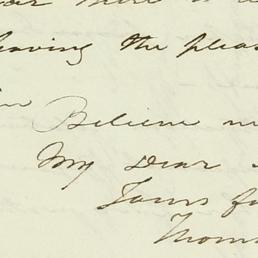 having the pleas
Believe m
My Dear
Yours f
Thom